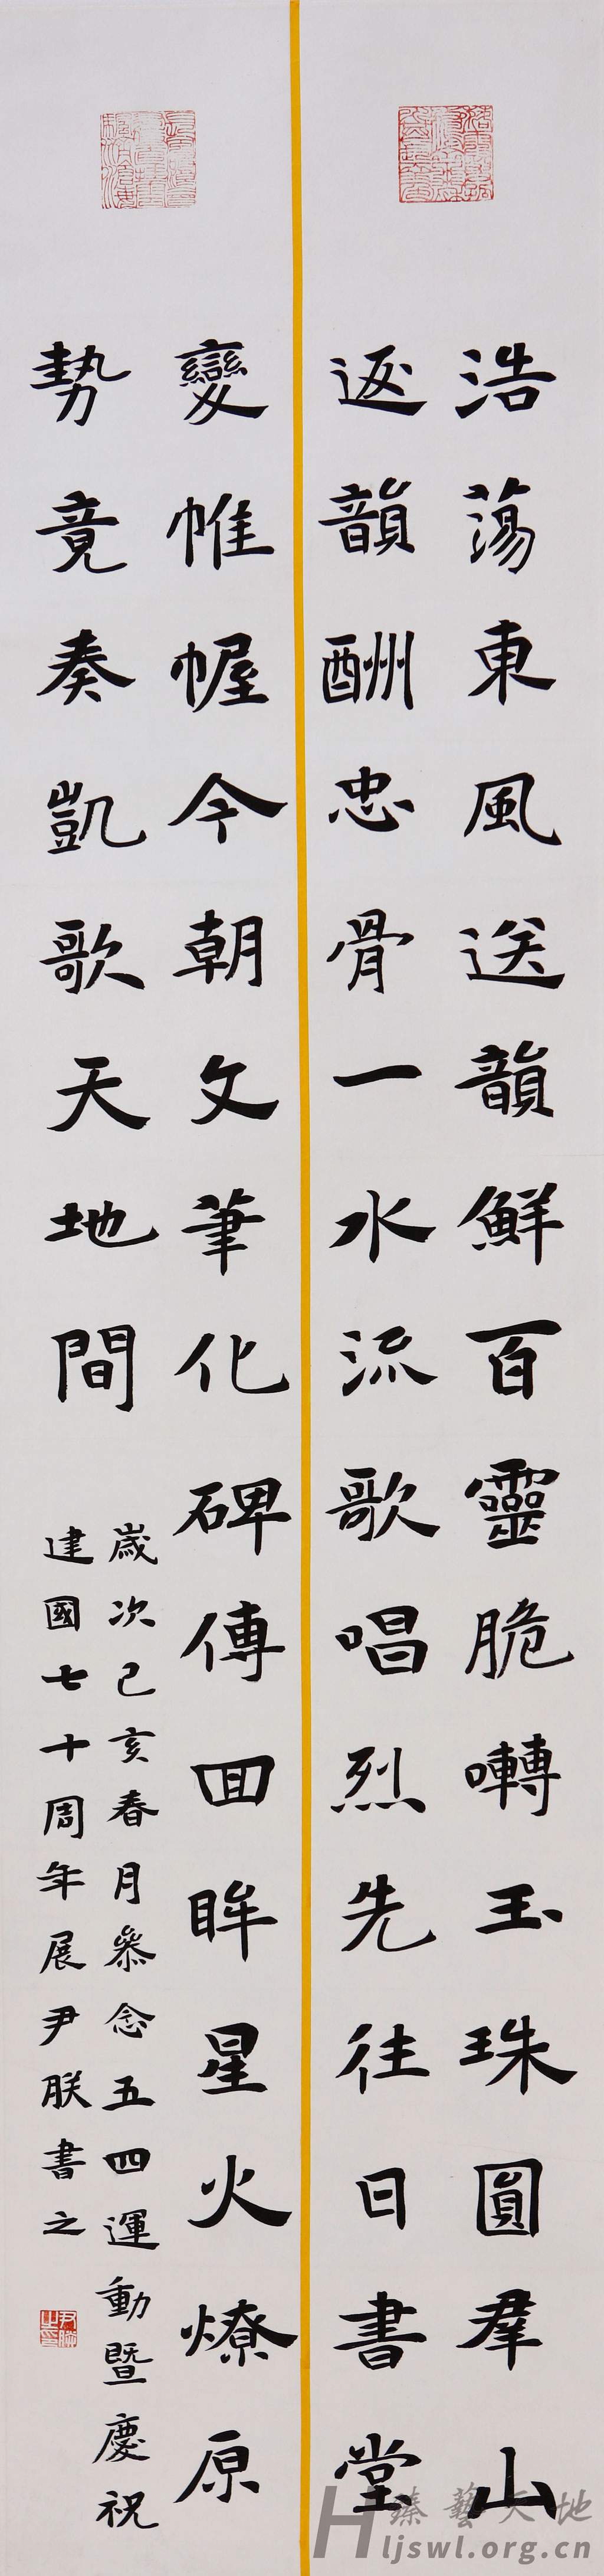 浩蕩東風送韻鮮百靈脆囀玉珠圓羣山
返韻酬忠骨一水流歌唱烈先往日書堂
變帷幄今朝文筆化碑傳回眸星火燎原
勢竟奏凱歌天地間
歲次己亥春月參念五四運動暨慶祝
建國七十周年展尹朕書之
臻藝天地
Hljswl.org.cn